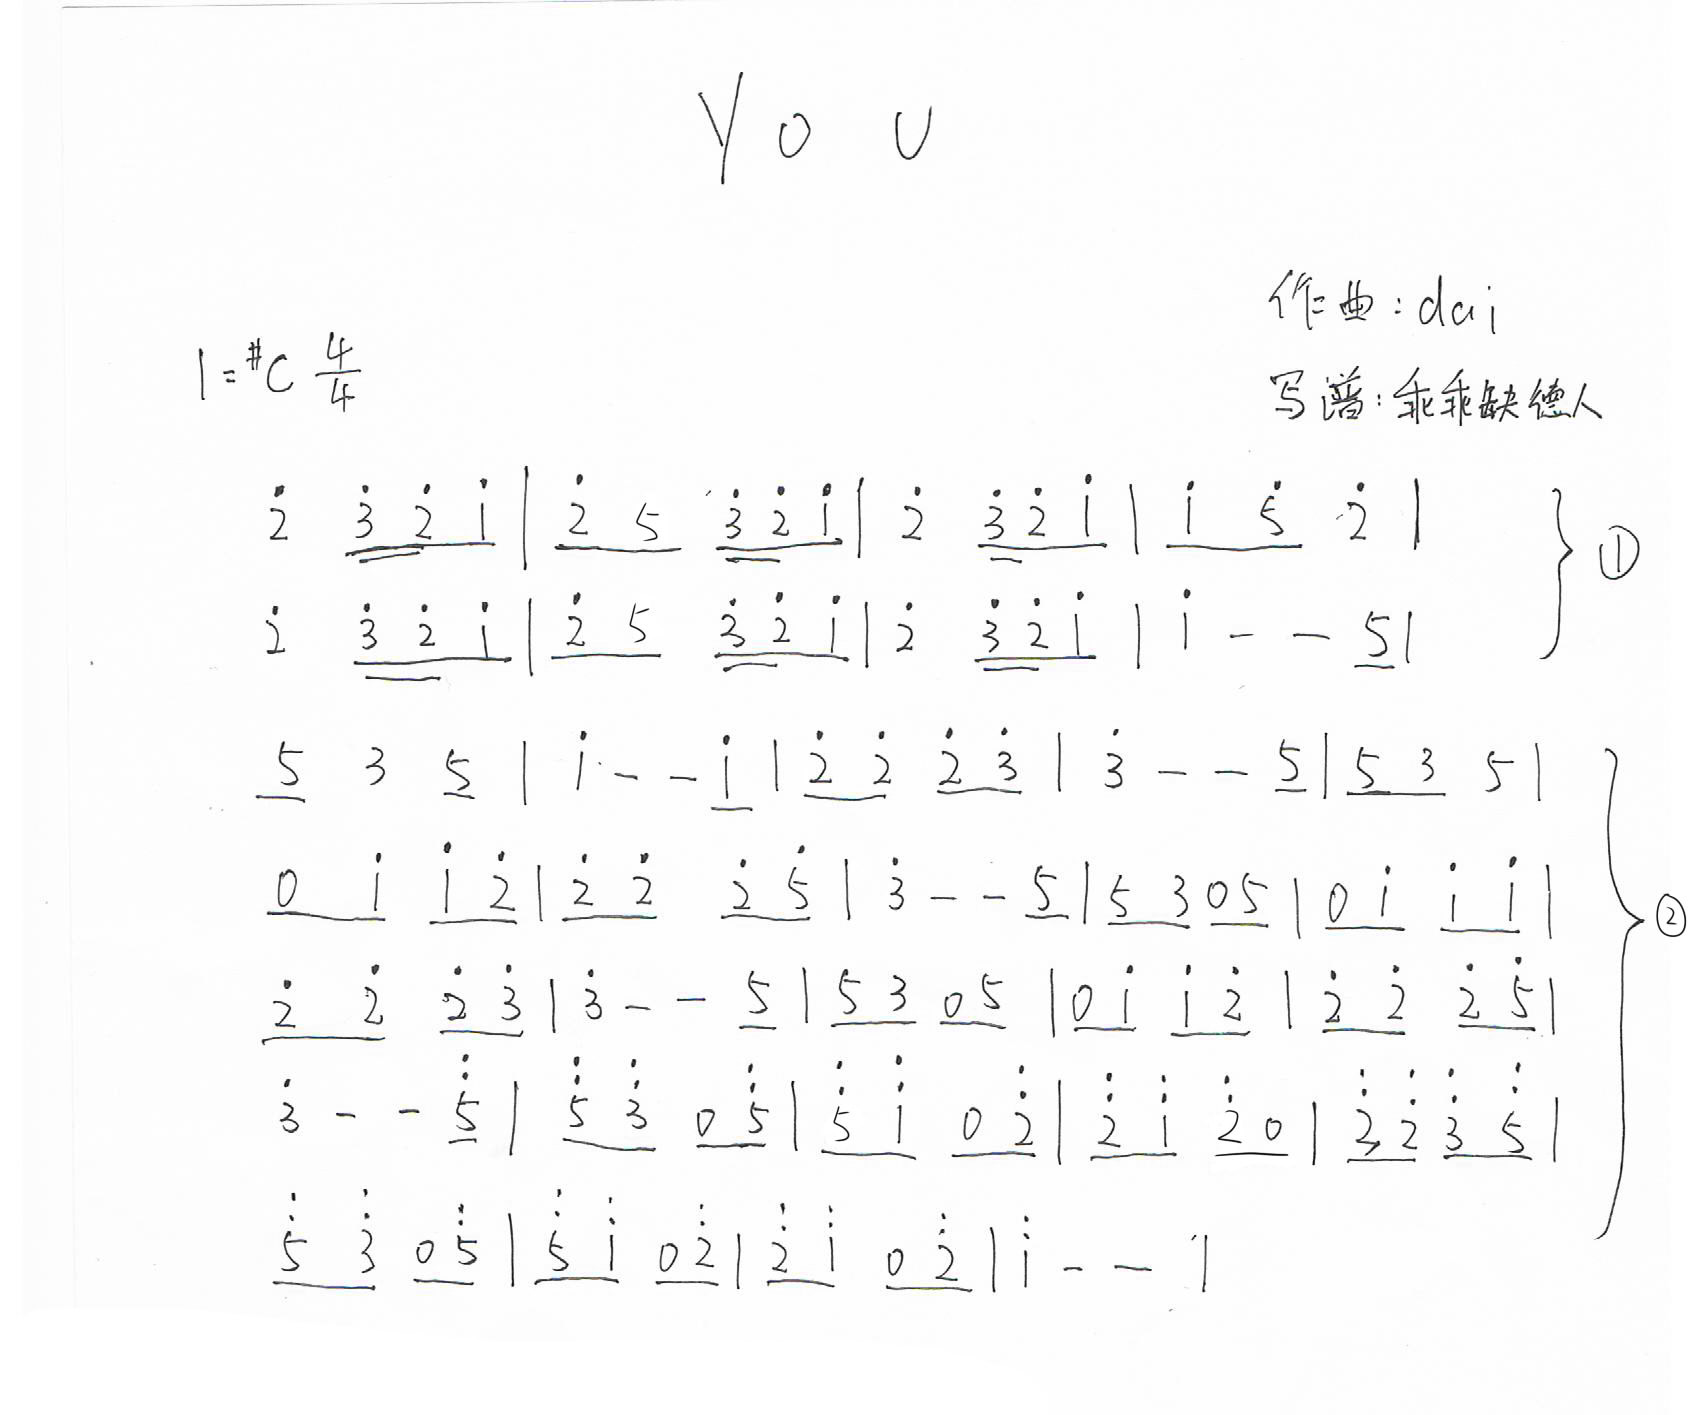 YOU
作曲:dai
1=#C 4/4
写谱:乖乖缺德人
2̇ 3̇ 2̇ 1̇ | 2̇ 5 3̇ 2̇ 1̇ | 2̇ 3̇ 2̇ 1̇ | 1̇ 5̇ 2̇ | ①
2̇ 3̇ 2̇ 1̇ | 2̇ 5 3̇ 2̇ 1̇ | 2̇ 3̇ 2̇ 1̇ | 1̇ - - 5 |
5 3 5 | 1̇ - - 1̇ | 2̇ 2̇ 2̇ 3̇ | 3̇ - - 5 | 5 3 5 |
0 1̇ 1̇ 2̇ | 2̇ 2̇ 2̇ 5̇ | 3̇ - - 5 | 5 3 0 5 | 0 1̇ 1̇ 1̇ | ②
2̇ 2̇ 2̇ 3̇ | 3̇ - - 5 | 5 3 0 5 | 0 1̇ 1̇ 2̇ | 2̇ 2̇ 2̇ 5̇ |
3̇ - - 5̈ | 5̈ 3̈ 0 5̈ | 5̈ 1̈ 0 2̈ | 2̈ 1̈ 2̈ 0 | 2̈ 2̈ 3̈ 5̈ |
5̈ 3̈ 0 5̈ | 5̈ 1̈ 0 2̈ | 2̈ 1̈ 0 2̈ | 1̈ - - 1